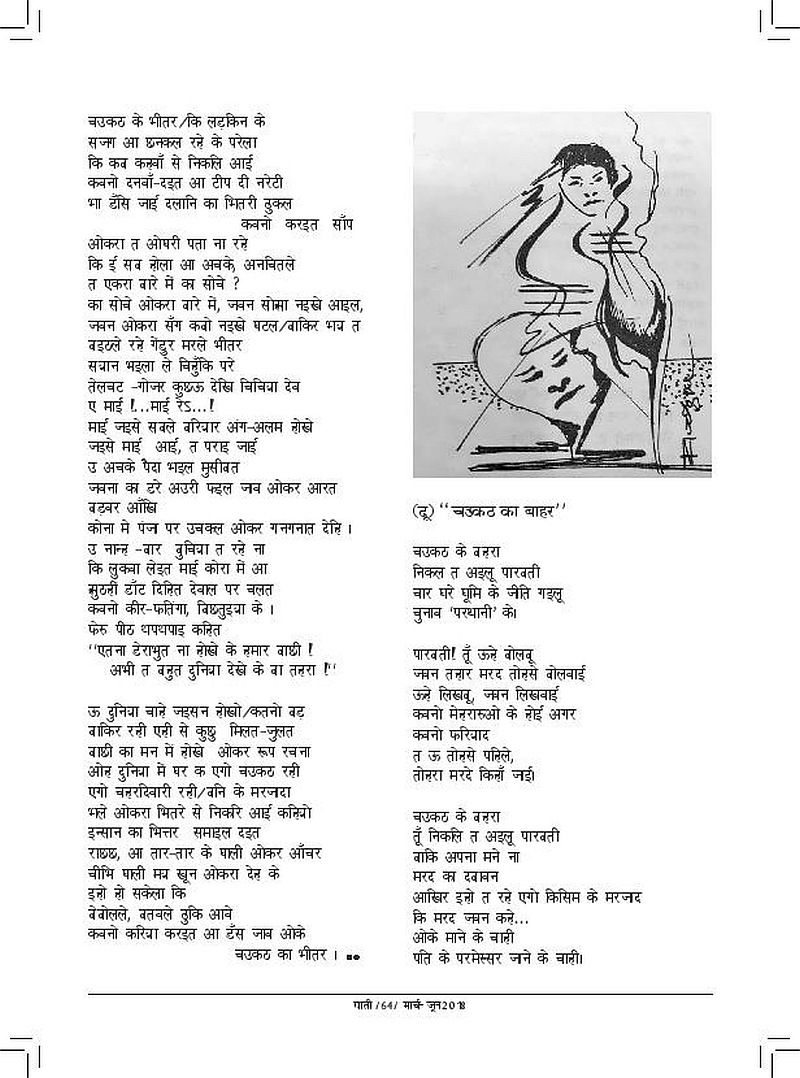 चउकठ के भीतर/कि लड़किन के
सजग आ छनकल रहे के परेला
कि कब कहवाँ से निकलि आई
कवनो दनवाँ-दइत आ टीप दी नरेटी
भा डँसि जाई दलानि का भितरी ढुकल
कवनो करइत साँप
ओकरा त ओघरी पता ना रहे
कि ई सब होला आ अचके, अनचितले
त एकरा बारे में का सोचे ?
का सोचे ओकरा बारे में, जवन सोझा नइखे आइल,
जवन ओकरा सँग कबो नइखे घटल/बाकिर भय त
बइठले रहे गेंडुर मरले भीतर
सयान भइला ले चिहुँकि परे
तेलचट -गोजर कुछऊ देखि चिचिया देव
ए माई !...माई रेऽ...!
माई जइसे सबले बरियार अंग-अलम होखे
जइसे माई आई, त पराइ जाई
उ अचके पैदा भइल मुसीबत
जवना का डरे अउरी फइल जाव ओकर आरत
बड़वर आँखि
कोना मे पंजा पर उचकल ओकर गनगनात देहि ।
उ नान्ह -बार बुचिया त रहे ना
कि लुकवा लेइत माई कोरा में आ
झुठही डाँट दिहित देवाल पर चलत
कवनो कीर-फतिंगा, बिछतुइया के ।
फेरु पीठ थपथपाइ कहित
"एतना डेराभुत ना होखे के हमार बाछी !
अभी त बहुत दुनिया देखे के बा तहरा !"
ऊ दुनिया चाहे जइसन होखो/कतनो बड़
बाकिर रही एही से कुछु मिलत-जुलत
बाछी का मन में होखे ओकर रूप रचना
ओह दुनिया में घर क एगो चउकठ रही
एगो चहरदिवारी रही/बनि के मरजादा
भले ओकरा भितरे से निकरि आई कहियो
इन्सान का भित्तर समाइल दइत
राछछ, आ तार-तार के घाली ओकर आँचर
चीभि घाली मय खून ओकरा देह के
इहो हो सकेला कि
बेबोलले, बतवले ढुकि आवे
कवनो करिया करइत आ डँस जाव ओके
चउकठ का भीतर । ●●
(दू) "चउकठ का बाहर"
चउकठ के बहरा
निकल त अइलू पारवती
चार घरे घूमि के जीति गइलू
चुनाव 'परधानी' के।
पारवती! तूँ ऊहे बोलबू
जवन तहार मरद तोहसे बोलवाई
ऊहे लिखबू, जवन लिखवाई
कवनो मेहरारुओ के होई अगर
कवनो फरियाद
त ऊ तोहसे पहिले,
तोहरा मरदे किहाँ जाई।
चउकठ के बहरा
तूँ निकलि त अइलू पारवती
बाकि अपना मने ना
मरद का दबावन
आखिर इहो त रहे एगो किसिम के मरजाद
कि मरद जवन कहे...
ओके माने के चाही
पति के परमेस्सर जाने के चाही।
पाती /64/ मार्च- जून2018